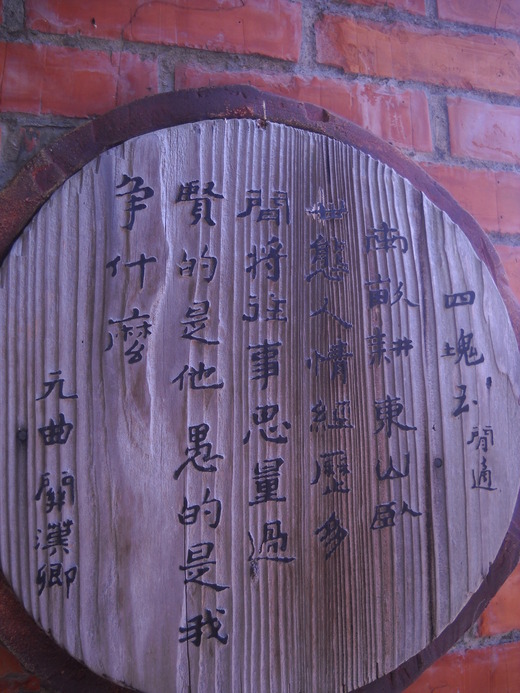 四塊玉 閒適
南畝耕東山臥
世態人情經歷多
閒將往事思量過
賢的是他愚的是我
爭什麼
元曲關漢卿